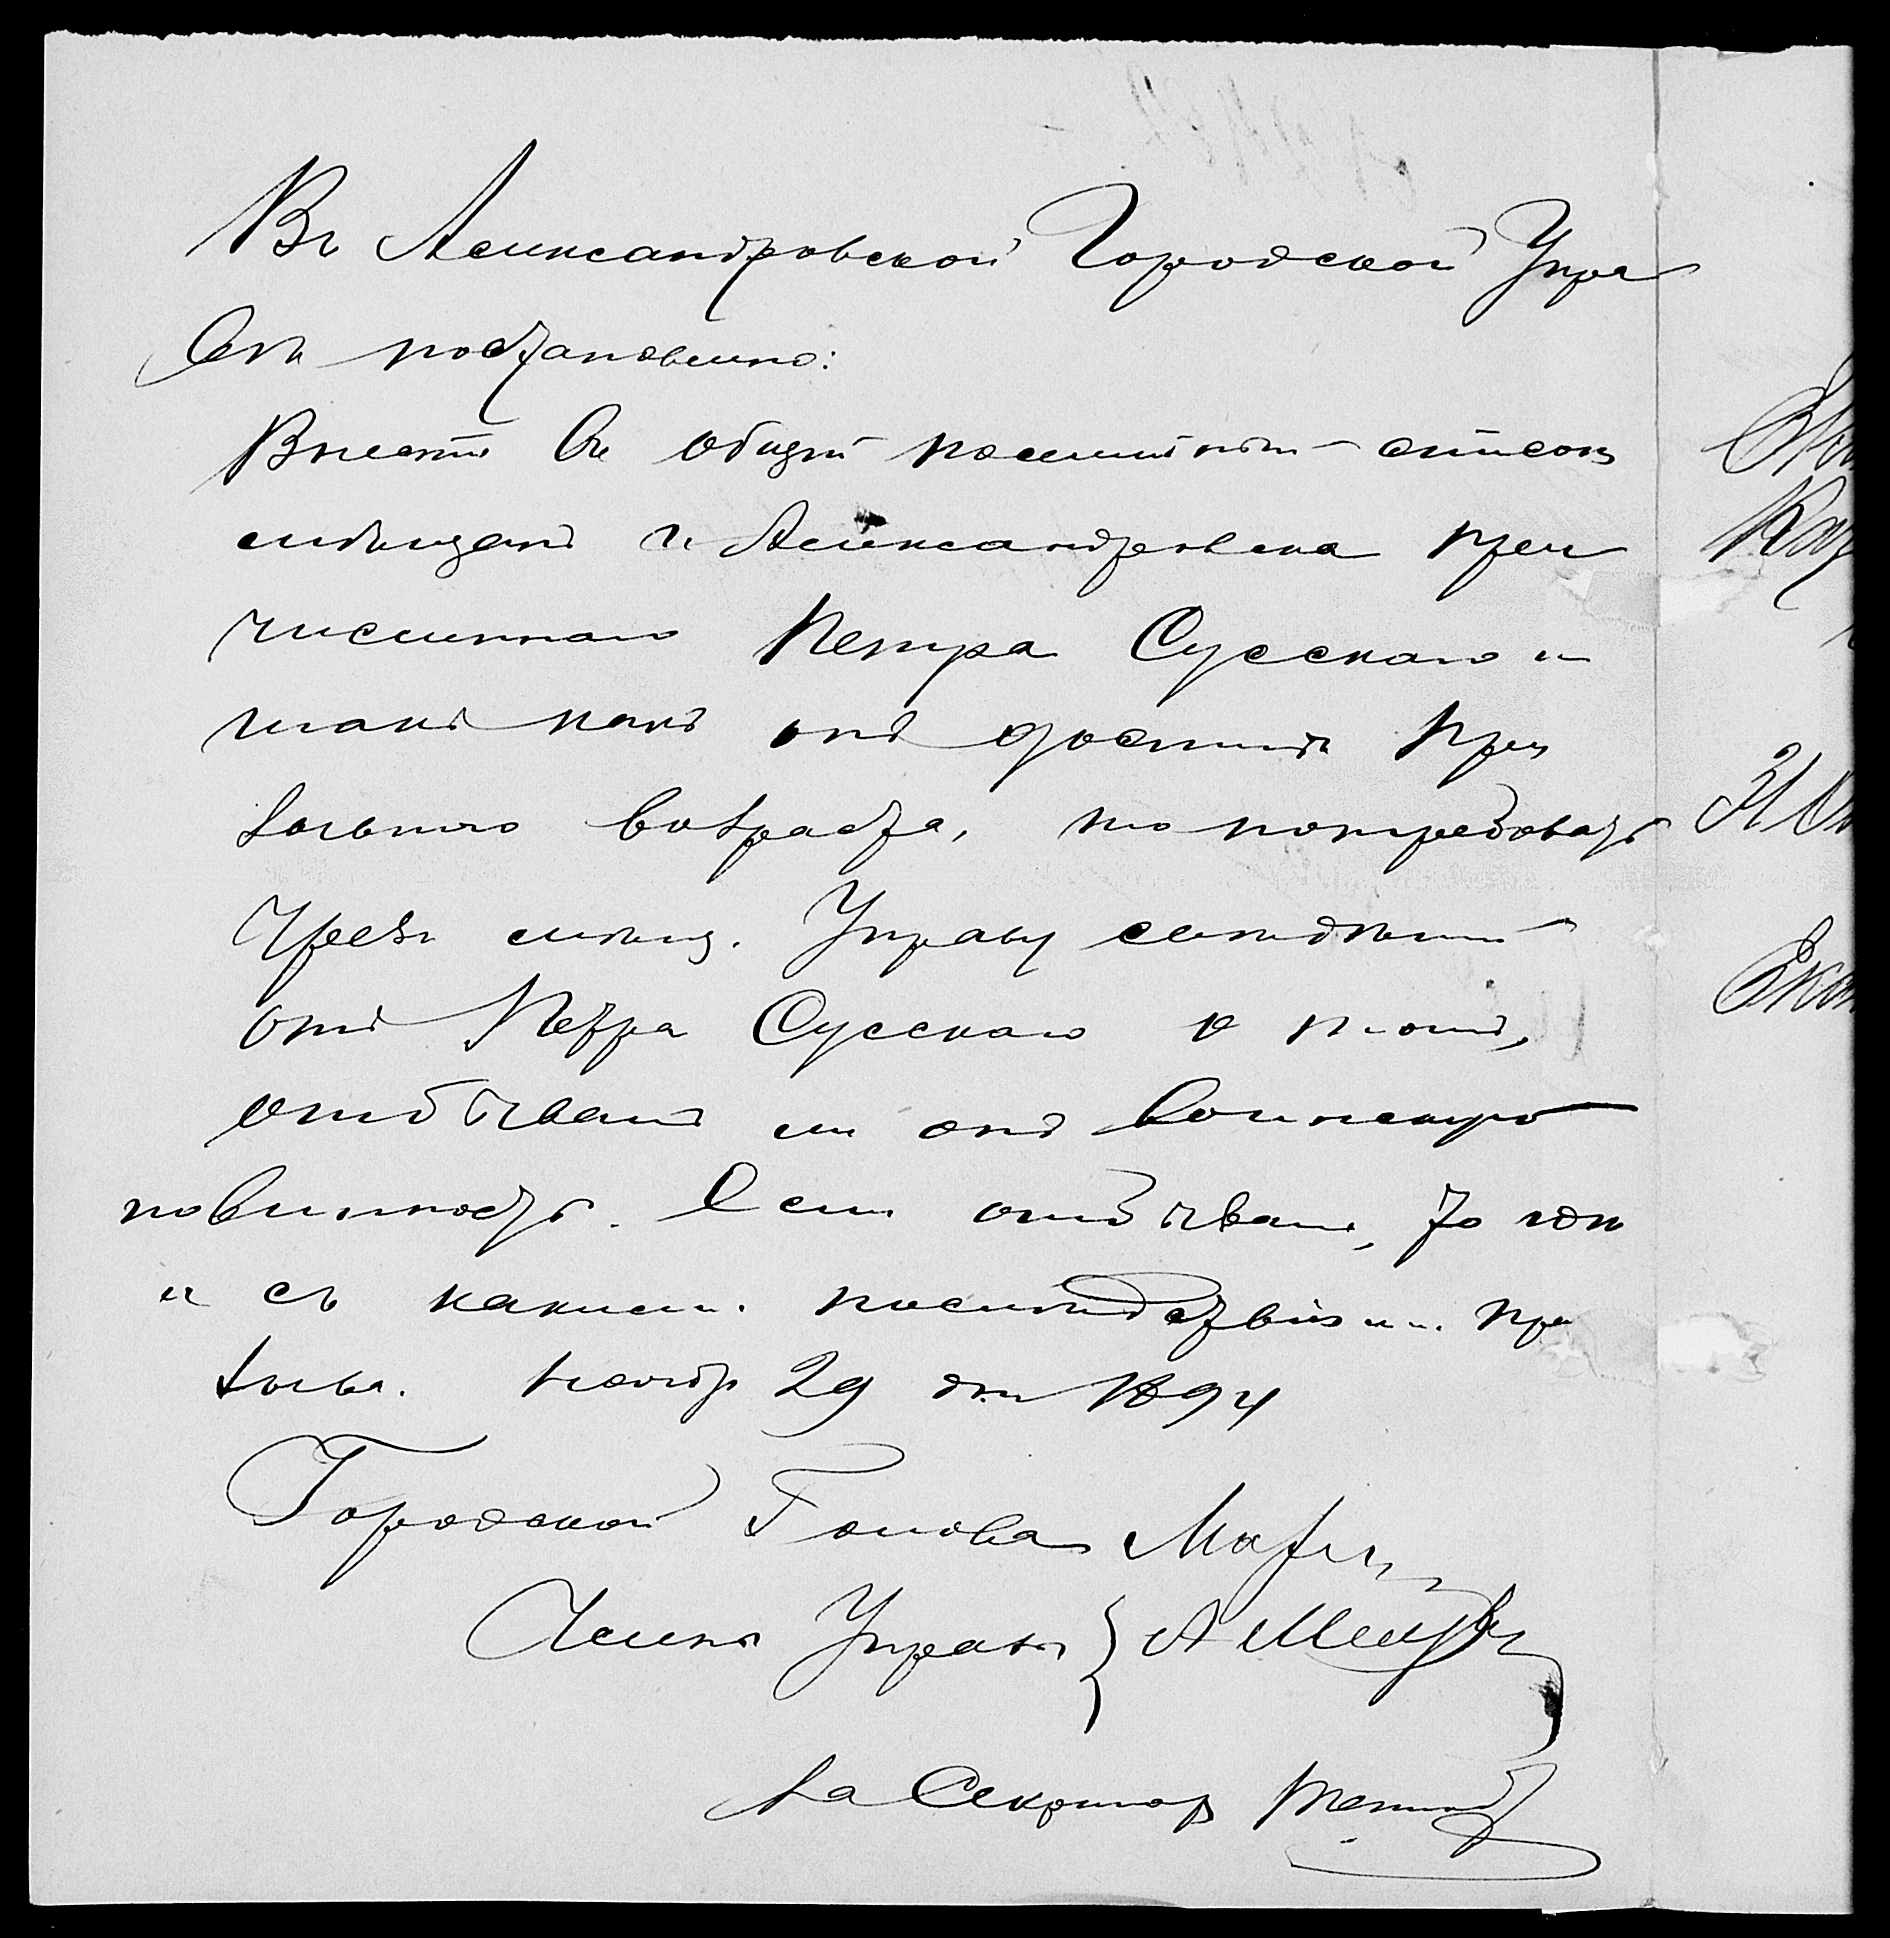 Въ Александровской Городской Упра
вѣ постановлено:
Внести въ общій посемейный список
мѣщанъ г. Александровска при
численнаго Петра Сусскаго и
такъ какъ онъ достигъ при
зывного возраста, то потребовать
чрезъ мѣщ. Управу свѣдѣній
отъ Петра Сусскаго о томъ,
отбывалъ ли онъ воинскую
повинность. Если отбывалъ, то гдѣ
и съ какими послѣдствіями при
зыва. Ноябр 29 дня 1894
Городской Голова
Члены Управы
За Секретаря